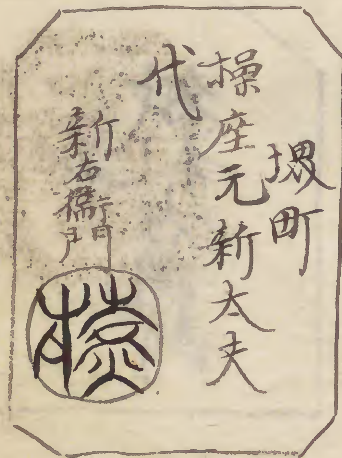 堺町
操座元新太夫
代
新右衛門